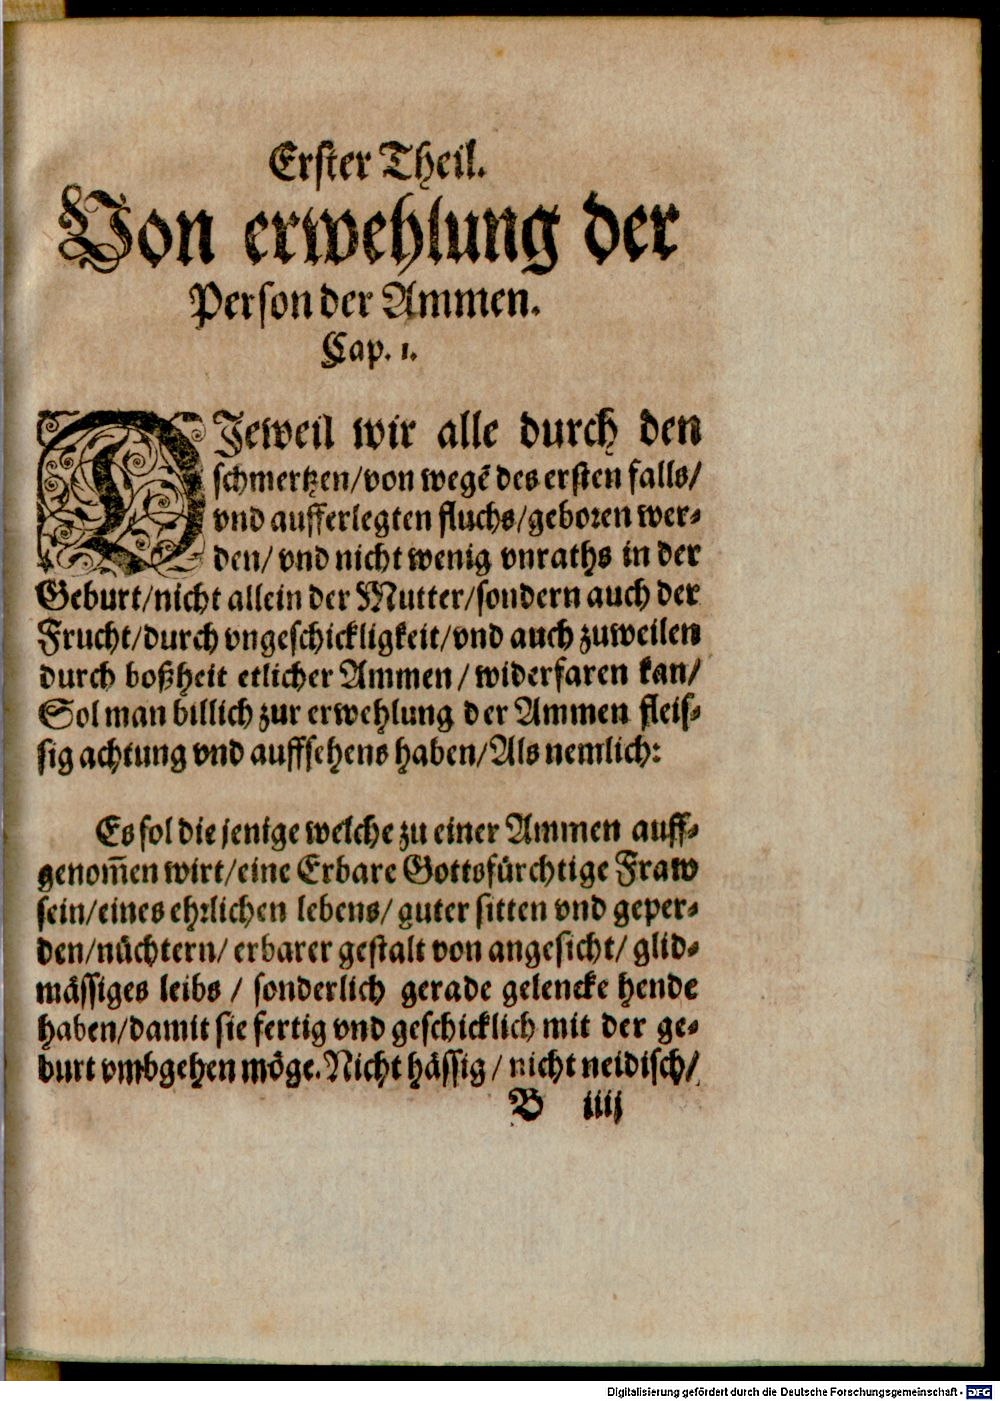 Erster Theil.
Von erwehlung der
Person der Ammen.
Cap. 1.
DJeweil wir alle durch den
schmertzen/von wegē des ersten falls/
vnd aufferlegten fluchs/geboren wer-
den/ vnd nicht wenig vnraths in der
Geburt/nicht allein der Mutter/sondern auch der
Frucht/durch vngeschickligkeit/vnd auch zuweilen
durch boßheit etlicher Ammen/ widerfaren kan/
Sol man billich zur erwehlung der Ammen fleis-
sig achtung vnd auffsehens haben/Als nemlich:
Es sol die jenige welche zu einer Ammen auff-
genom̄en wirt/eine Erbare Gottsfürchtige Fraw
sein/eines ehrlichen lebens/ guter sitten vnd geper-
den/nüchtern/ erbarer gestalt von angesicht/ glid-
mässiges leibs / sonderlich gerade gelencke hende
haben/damit sie fertig vnd geschicklich mit der ge-
burt vmbgehen möge. Nicht hässig / nicht neidisch/
B iiij
Digitalisierung gefördert durch die Deutsche Forschungsgemeinschaft - DFG